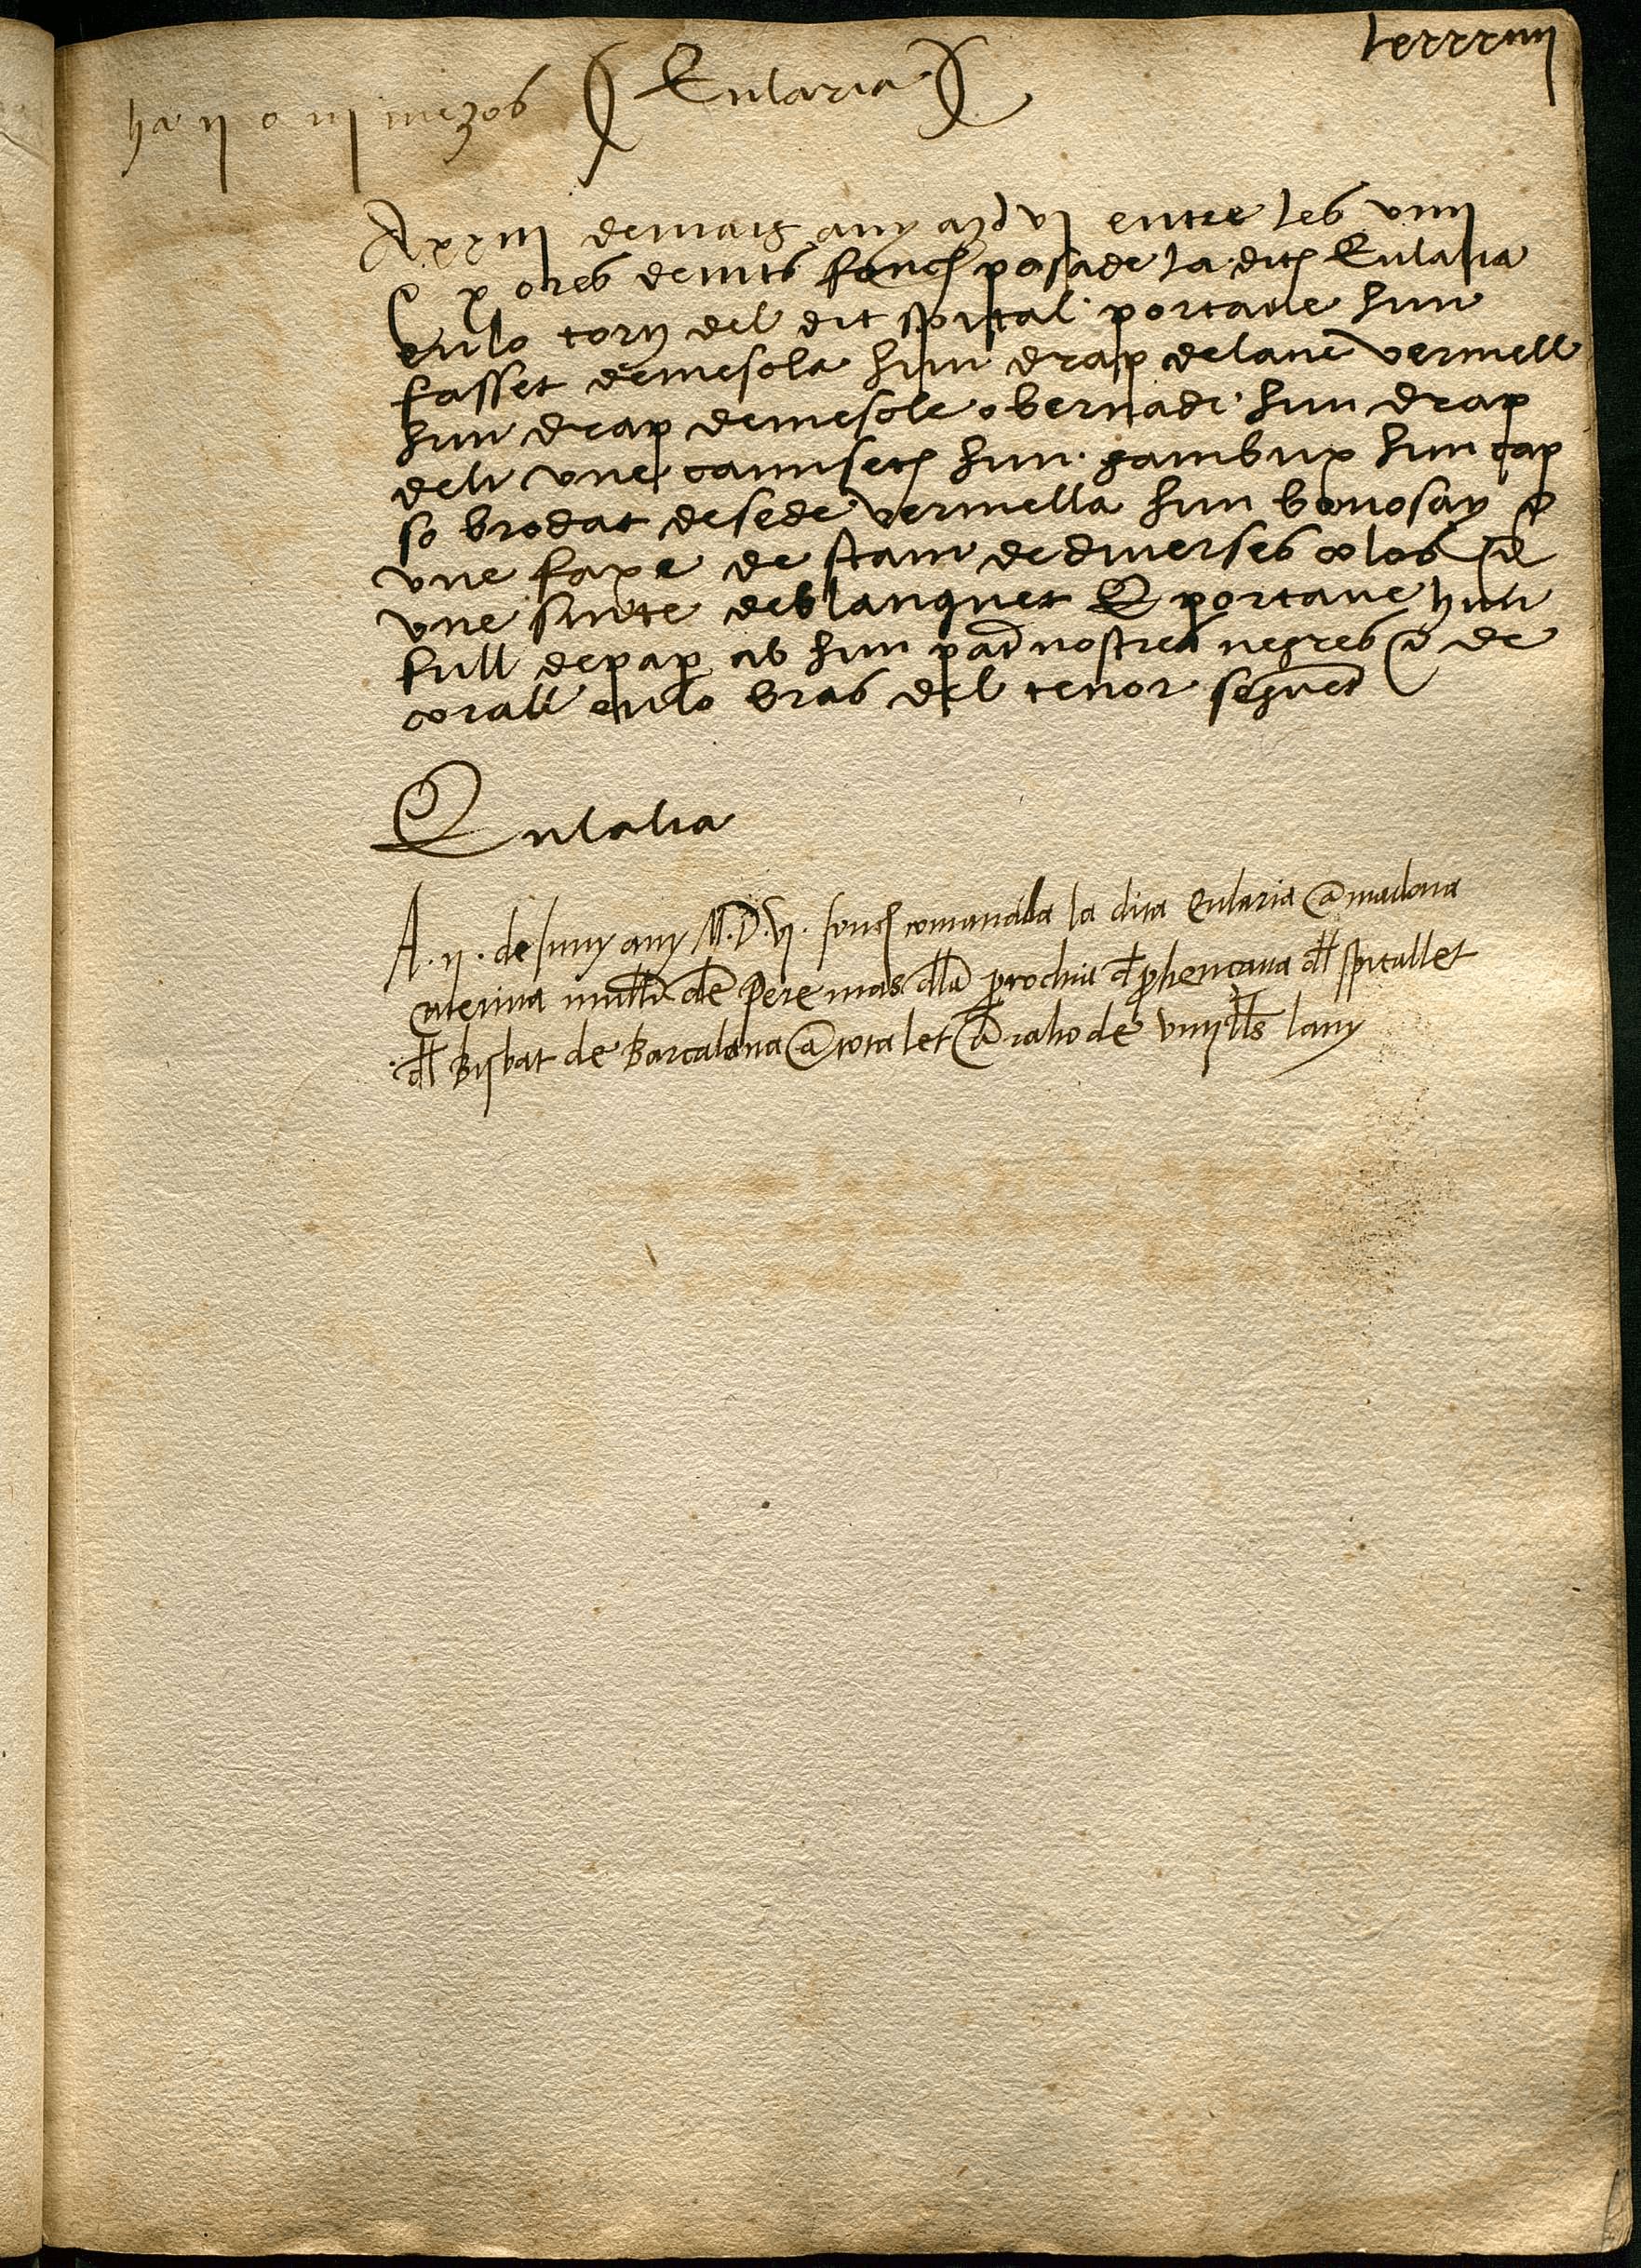 lxxxxiiii
ha ij o iij mezos (Eularia)
A xxiij de mars any mdvj entre les viiij
e x ores de nits fonch posade la dita Eulalia
en lo torn del dit spital portave hun
fasset de mesola hun drap de lane vermell
hun drap de mesole obernade hun drap
de li vne camiseta hun gambux hun cap
so brodat de sede vermella hun bonosay e
vne faxe de stam de diverses colos e
vne sinte de blanquet E portave hun
full de paper ab hun pad nostres negres e de
corall en lo bras del tenor seguent
Eulalia
A .ij. de Juny any M.D.vj. fonch comanada la dita Eularia a madona
muller de Pere mas dla parrochia d prohençana dl spitallet
dl Bisbat de Barcalona a tota let a raho de viiij lls lany